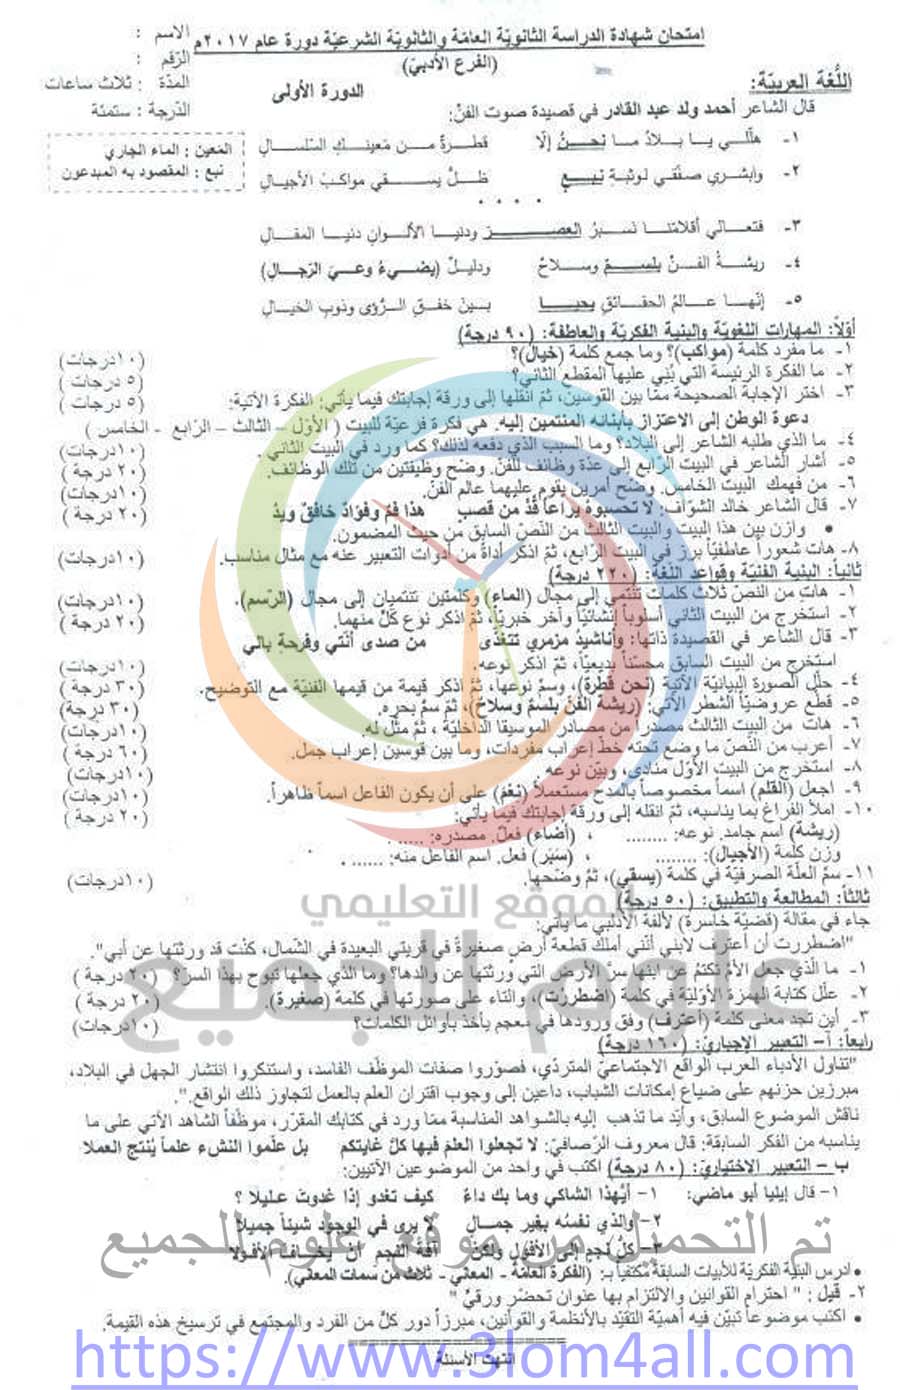 امتحان شهادة الدراسة الثانويّة العامّة والثانويّة الشرعيّة دورة عام ٢٠١٧م
(الفرع الأدبيّ)
الدورة الأولى
الاسم :
الرّقم :
المدّة : ثلاث ساعات
الدّرجة : ستمئة
اللّغة العربيّة:
قال الشاعر أحمد ولد عبد القادر في قصيدة صوت الفنّ:
١- هلّلي يا بلادُ ما نحنُ إلّا قطرةٌ من مَعينكِ السّلسالِ
٢- وابشري صفّقي لوثبةِ نبعٍ ظلَّ يسقي مواكبَ الأجيالِ
المَعين : الماء الجاري
نبع : المقصود به المبدعون
. . . .
٣- فتعالي أقلامَنا نسبُرُ العصرَ ودنيا الألوانِ دنيا المقالِ
٤- ريشةُ الفنّ بلسمٌ وسلاحٌ ودليلٌ (يضيءُ وعيَ الرّجالِ)
٥- إنّها عالمُ الحقائقِ يحيا بينَ خفقِ الرّؤى وذوبِ الخيالِ
أوّلاً: المهارات اللغويّة والبنية الفكريّة والعاطفة: (٩٠ درجة)
١- ما مفرد كلمة (مواكب)؟ وما جمع كلمة (خيال)؟ (١٠ درجات)
٢- ما الفكرة الرئيسة التي بُني عليها المقطع الثاني؟ (٥ درجات)
٣- اختر الإجابة الصحيحة ممّا بين القوسين، ثمّ انقلها إلى ورقة إجابتك فيما يأتي: الفكرة الآتية: (٥ درجات)
دعوة الوطن إلى الاعتزاز بأبنائه المنتمين إليه. هي فكرة فرعيّة للبيت ( الأوّل – الثالث – الرابع - الخامس )
٤- ما الذي طلبه الشاعر إلى البلاد؟ وما السبب الذي دفعه لذلك؟ كما ورد في البيت الثاني. (١٠ درجات)
٥- أشار الشاعر في البيت الرابع إلى عدّة وظائف للفنّ. وضّح وظيفتين من تلك الوظائف. (٢٠ درجة)
٦- من فهمك البيت الخامس. وضّح أمرين يقوم عليهما عالم الفنّ. (١٠ درجات)
٧- قال الشاعر خالد الشوّاف: لا تحسبوه يراعاً قُدَّ من قصبٍ هذا فمٌ وفؤادٌ خافقٌ ويدُ (٢٠ درجة)
• وازن بين هذا البيت والبيت الثالث من النّصّ السابق من حيث المضمون.
٨- هات شعوراً عاطفيّاً برز في البيت الرّابع، ثمّ اذكر أداةً من أدوات التعبير عنه مع مثال مناسب. (١٠ درجات)
ثانياً: البنية الفنيّة وقواعد اللغة: (٢٢٠ درجة)
١- هات من النّصّ ثلاث كلمات تنتمي إلى مجال (الماء) وكلمتين تنتميان إلى مجال (الرّسم). (١٠ درجات)
٢- استخرج من البيت الثاني أسلوباً إنشائيّاً وآخر خبريّاً، ثمّ اذكر نوع كلٍّ منهما. (٢٠ درجة)
٣- قال الشاعر في القصيدة ذاتها: وأناشيدُ مزمري تتغذّى من صدى أنّتي وفرحةِ بالي
استخرج من البيت السابق محسّناً بديعيّاً، ثمّ اذكر نوعه. (١٠ درجات)
٤- حلّل الصورة البيانيّة الآتية (نحن قطرة)، وسمِّ نوعها، ثمّ اذكر قيمة من قيمها الفنيّة مع التوضيح. (٣٠ درجة)
٥- قطّع عروضيّاً الشطر الآتي: (ريشة الفنّ بلسمٌ وسلاحٌ)، ثمّ سمِّ بحره. (٣٠ درجة)
٦- هات من البيت الثالث مصدراً من مصادر الموسيقا الداخليّة ، ثمّ مثّل له. (١٠ درجات)
٧- أعرب من النّصّ ما وضع تحته خطّ إعراب مفردات، وما بين قوسين إعراب جمل. (٦٠ درجة)
٨- استخرج من البيت الأوّل منادى، وبيّن نوعه. (١٠ درجات)
٩- اجعل (القلم) اسماً مخصوصاً بالمدح مستعملاً (نِعْمَ) على أن يكون الفاعل اسماً ظاهراً. (١٠ درجات)
١٠- املأ الفراغ بما يناسبه، ثمّ انقله إلى ورقة إجابتك فيما يأتي: (٢٠ درجة)
(ريشة) اسم جامد. نوعه: ........ ، (أضاء) فعلٌ. مصدره: ......
وزن كلمة (الأجيال): ........ ، (سَبَرَ) فعل. اسم الفاعل منه: ......
١١- سمِّ العلّة الصرفيّة في كلمة (يسقي)، ثمّ وضّحها. (١٠ درجات)
الموقع التعليمي
علوم للجميع
ثالثاً: المطالعة والتطبيق: (٥٠ درجة)
جاء في مقالة (قضيّة خاسرة) لألفة الأدلبي ما يأتي:
"اضطررت أن أعترف لابني أنّني أملك قطعة أرضٍ صغيرةً في قريتي البعيدة في الشّمال، كنْت قد ورثتها عن أبي".
١- ما الّذي جعل الأمّ تكتمُ عن ابنها سرَّ الأرض التي ورثتها عن والدها؟ وما الذي جعلها تبوح بهذا السرّ؟ (٢٠ درجة )
٢- علّل كتابة الهمزة الأوّليّة في كلمة (اضطررت)، والتاء على صورتها في كلمة (صغيرة). (٢٠ درجة )
٣- أين تجد معنى كلمة (أعترف) وفق ورودها في معجم يأخذ بأوائل الكلمات؟ (١٠ درجات)
رابعاً: أ– التعبير الإجباريّ: (١٦٠ درجة)
"تناول الأدباء العرب الواقع الاجتماعيّ المتردّي، فصوّروا صفات الموظّف الفاسد، واستنكروا انتشار الجهل في البلاد،
مبرزين حزنهم على ضياع إمكانات الشباب، داعين إلى وجوب اقتران العلم بالعمل لتجاوز ذلك الواقع.".
ناقش الموضوع السابق، وأيّد ما تذهب إليه بالشّواهد المناسبة ممّا ورد في كتابك المقرّر، موظّفاً الشاهد الآتي على ما
يناسبه من الفكر السابقة: قال معروف الرّصافيّ: لا تجعلوا العلمَ فيها كلَّ غايتكم بل علّموا النشء علماً يُنتج العملا
ب – التعبير الاختياريّ: (٨٠ درجة) اكتب في واحد من الموضوعين الآتيين:
١- قال إيليا أبو ماضي: ١- أيّهذا الشاكي وما بك داءٌ كيف تغدو إذا غدوتَ عليلا ؟
٢- والذي نفسُه بغير جمالٍ لا يرى في الوجود شيئاً جميلا
٣- كلُّ نجمٍ إلى الأفولِ ولكن آفةُ النجمِ أنْ يخافَ الأفولا
• ادرس البنية الفكريّة للأبيات السابقة مكتفياً بـ: (الفكرة العامّة - المعاني - ثلاث من سمات المعاني).
٢- قيل : " احترام القوانين والالتزام بها عنوان تحضّر ورقيّ "
• اكتب موضوعاً تبيّن فيه أهميّة التقيّد بالأنظمة والقوانين، مبرزاً دور كلٍّ من الفرد والمجتمع في ترسيخ هذه القيمة.
تم التحميل من موقع علوم للجميع
انتهت الأسئلة
https://www.3lom4all.com